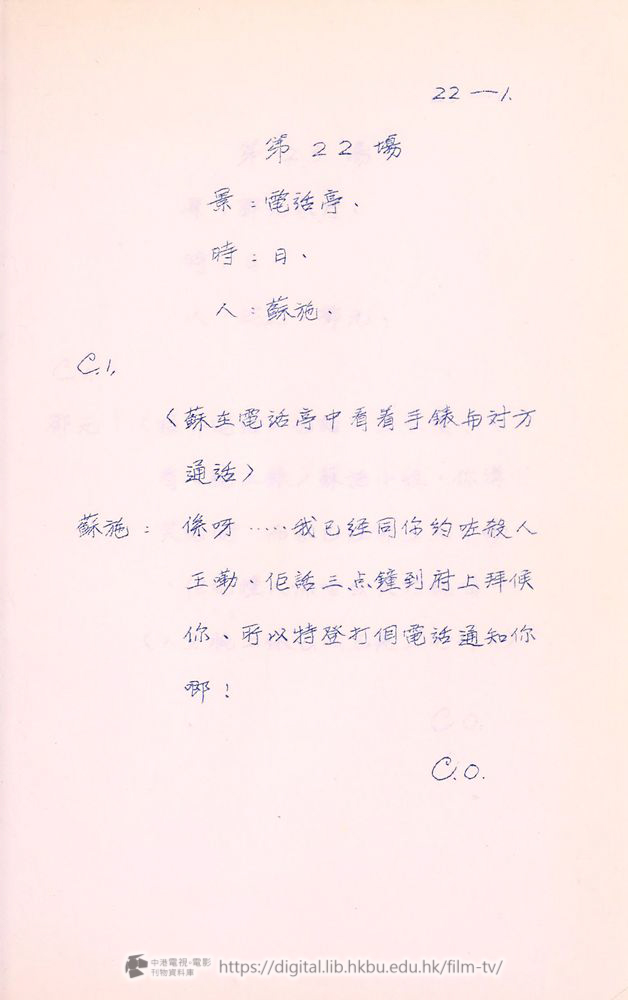 22—1.
第 22 場
景：電話亭、
時：日、
人：蘇施、
C.I,
〈蘇在電話亭中看着手錶与对方
通話〉
蘇施：係呀……我已經同你約咗殺人
王嘞、佢話三点鐘到府上拜候
你、所以特登打個電話通知你
啷！
C.O.
中港電視·電影
刊物資料庫
https://digital.lib.hkbu.edu.hk/film-tv/